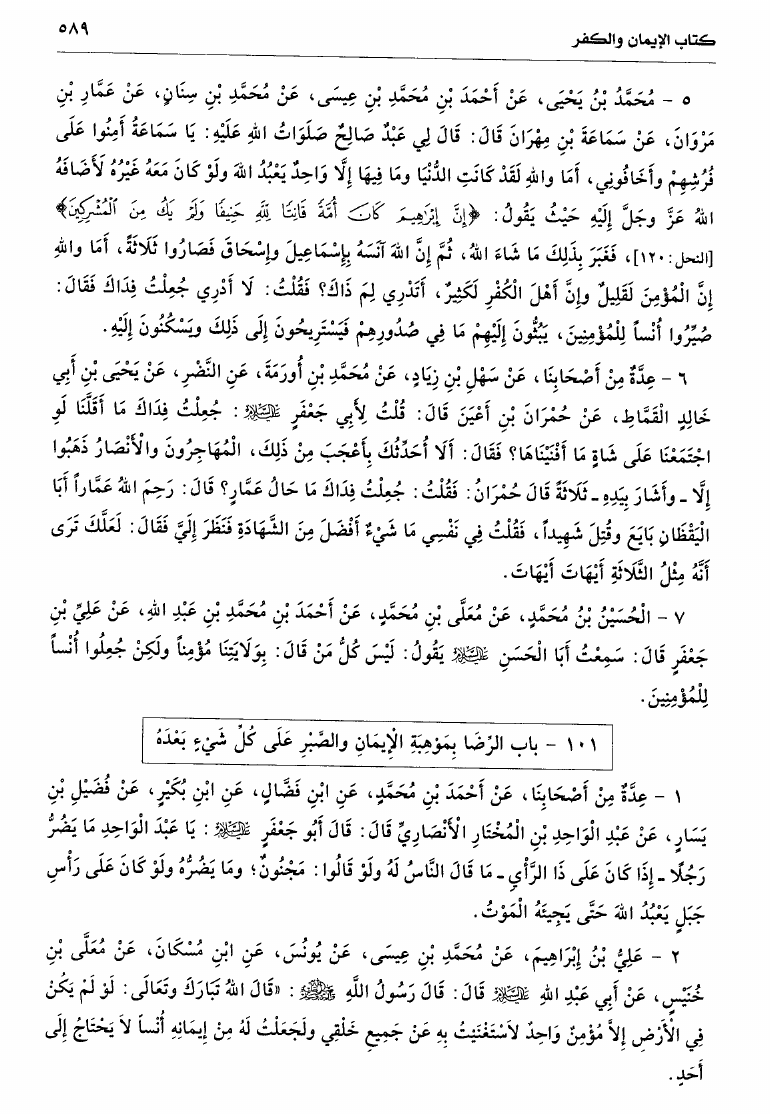 كتاب الإيمان والكفر
٥٨٩
٥ - مُحَمَّدُ بْنُ يَحْيَى، عَنْ أَحْمَدَ بْنِ مُحَمَّدِ بْنِ عِيسَى، عَنْ مُحَمَّدِ بْنِ سِنَانٍ، عَنْ عَمَّارِ بْنِ
مَرْوَانَ، عَنْ سَمَاعَةَ بْنِ مِهْرَانَ قَالَ: قَالَ لِي عَبْدٌ صَالِحٌ صَلَوَاتُ اللهِ عَلَيْهِ: يَا سَمَاعَةُ أَمِنُوا عَلَى
فُرُشِهِمْ وأَخَافُونِي، أَمَا واللهِ لَقَدْ كَانَتِ الدُّنْيَا ومَا فِيهَا إِلَّا وَاحِدٌ يَعْبُدُ اللهَ ولَوْ كَانَ مَعَهُ غَيْرُهُ لَأَضَافَهُ
اللهُ عَزَّ وجَلَّ إِلَيْهِ حَيْثُ يَقُولُ: ﴿إِنَّ إِبْرَٰهِيمَ كَانَ أُمَّةً قَانِتًا لِّلَّهِ حَنِيفًا وَلَمْ يَكُ مِنَ ٱلْمُشْرِكِينَ﴾
[النحل: ١٢٠]، فَغَبَرَ بِذَلِكَ مَا شَاءَ اللهُ، ثُمَّ إِنَّ اللهَ آنَسَهُ بِإِسْمَاعِيلَ وإِسْحَاقَ فَصَارُوا ثَلَاثَةً، أَمَا واللهِ
إِنَّ الْمُؤْمِنَ لَقَلِيلٌ وإِنَّ أَهْلَ الْكُفْرِ لَكَثِيرٌ، أَتَدْرِي لِمَ ذَاكَ؟ فَقُلْتُ: لَا أَدْرِي جُعِلْتُ فِدَاكَ فَقَالَ:
صُيِّرُوا أُنْساً لِلْمُؤْمِنِينَ، يَبُثُّونَ إِلَيْهِمْ مَا فِي صُدُورِهِمْ فَيَسْتَرِيحُونَ إِلَى ذَلِكَ ويَسْكُنُونَ إِلَيْهِ.
٦ - عِدَّةٌ مِنْ أَصْحَابِنَا، عَنْ سَهْلِ بْنِ زِيَادٍ، عَنْ مُحَمَّدِ بْنِ أُورَمَةَ، عَنِ النَّضْرِ، عَنْ يَحْيَى بْنِ أَبِي
خَالِدٍ الْقَمَّاطِ، عَنْ حُمْرَانَ بْنِ أَعْيَنَ قَالَ: قُلْتُ لِأَبِي جَعْفَرٍ عَلَيْهِ السَّلَامُ: جُعِلْتُ فِدَاكَ مَا أَقَلَّنَا لَوِ
اجْتَمَعْنَا عَلَى شَاةٍ مَا أَفْنَيْنَاهَا؟ فَقَالَ: أَلَا أُحَدِّثُكَ بِأَعْجَبَ مِنْ ذَلِكَ، الْمُهَاجِرُونَ والْأَنْصَارُ ذَهَبُوا
إِلَّا ـ وأَشَارَ بِيَدِهِ ـ ثَلَاثَةً قَالَ حُمْرَانُ: فَقُلْتُ: جُعِلْتُ فِدَاكَ مَا حَالُ عَمَّارٍ؟ قَالَ: رَحِمَ اللهُ عَمَّاراً أَبَا
الْيَقْظَانِ بَايَعَ وقُتِلَ شَهِيداً، فَقُلْتُ فِي نَفْسِي مَا شَيْءٌ أَفْضَلَ مِنَ الشَّهَادَةِ فَنَظَرَ إِلَيَّ فَقَالَ: لَعَلَّكَ تَرَى
أَنَّهُ مِثْلُ الثَّلَاثَةِ أَيْهَاتَ أَيْهَاتَ.
٧ - الْحُسَيْنُ بْنُ مُحَمَّدٍ، عَنْ مُعَلَّى بْنِ مُحَمَّدٍ، عَنْ أَحْمَدَ بْنِ مُحَمَّدِ بْنِ عَبْدِ اللهِ، عَنْ عَلِيِّ بْنِ
جَعْفَرٍ قَالَ: سَمِعْتُ أَبَا الْحَسَنِ عَلَيْهِ السَّلَامُ يَقُولُ: لَيْسَ كُلُّ مَنْ قَالَ: بِوَلَايَتِنَا مُؤْمِناً ولَكِنْ جُعِلُوا أُنْساً
لِلْمُؤْمِنِينَ.
١٠١ - باب الرِّضَا بِمَوْهِبَةِ الْإِيمَانِ والصَّبْرِ عَلَى كُلِّ شَيْءٍ بَعْدَهُ
١ - عِدَّةٌ مِنْ أَصْحَابِنَا، عَنْ أَحْمَدَ بْنِ مُحَمَّدٍ، عَنِ ابْنِ فَضَّالٍ، عَنِ ابْنِ بُكَيْرٍ، عَنْ فُضَيْلِ بْنِ
يَسَارٍ، عَنْ عَبْدِ الْوَاحِدِ بْنِ الْمُخْتَارِ الْأَنْصَارِيِّ قَالَ: قَالَ أَبُو جَعْفَرٍ عَلَيْهِ السَّلَامُ: يَا عَبْدَ الْوَاحِدِ مَا يَضُرُّ
رَجُلًا ـ إِذَا كَانَ عَلَى ذَا الرَّأْيِ ـ مَا قَالَ النَّاسُ لَهُ ولَوْ قَالُوا: مَجْنُونٌ؛ ومَا يَضُرُّهُ ولَوْ كَانَ عَلَى رَأْسِ
جَبَلٍ يَعْبُدُ اللهَ حَتَّى يَجِيئَهُ الْمَوْتُ.
٢ - عَلِيُّ بْنُ إِبْرَاهِيمَ، عَنْ مُحَمَّدِ بْنِ عِيسَى، عَنْ يُونُسَ، عَنِ ابْنِ مُسْكَانَ، عَنْ مُعَلَّى بْنِ
خُنَيْسٍ، عَنْ أَبِي عَبْدِ اللهِ عَلَيْهِ السَّلَامُ قَالَ: قَالَ رَسُولُ اللَّهِ ﷺ: «قَالَ اللهُ تَبَارَكَ وتَعَالَى: لَوْ لَمْ يَكُنْ
فِي الْأَرْضِ إِلاَّ مُؤْمِنٌ وَاحِدٌ لاَسْتَغْنَيْتُ بِهِ عَنْ جَمِيعِ خَلْقِي ولَجَعَلْتُ لَهُ مِنْ إِيمَانِهِ أُنْساً لاَ يَحْتَاجُ إِلَى
أَحَدٍ.